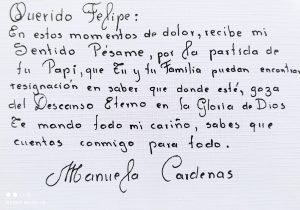 Querido Felipe:
En estos momentos de dolor, recibe mi
Sentido Pésame, por la partida de
tu Papi, que Tu y tu Familia puedan encontrar
resignación en saber que donde esté, goza
del Descanso Eterno en la Gloria de Dios
Te mando todo mi cariño, sabes que
cuentas conmigo para todo.
Manuela Cardenas